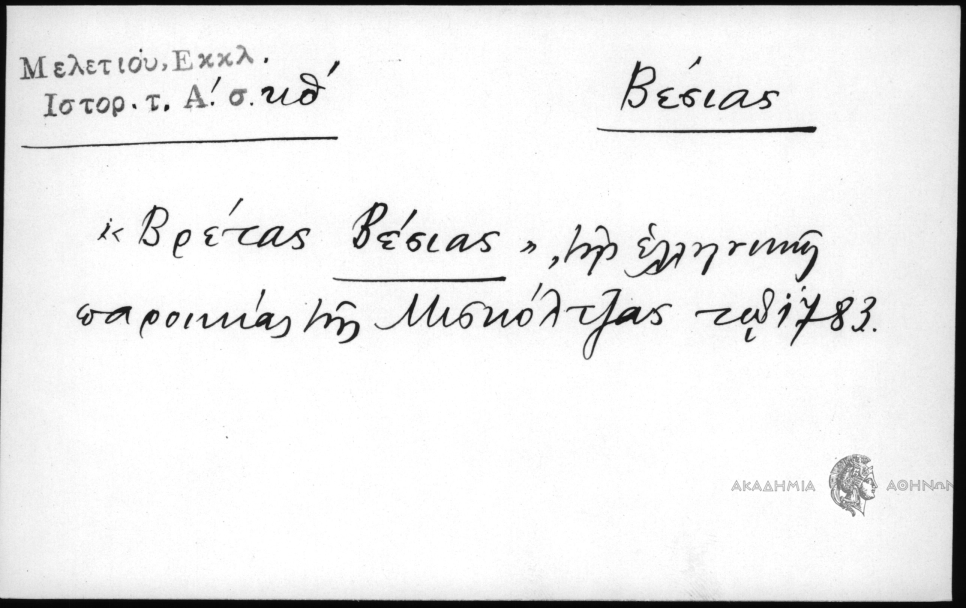 Μελετιόυ, Εκκλ.
Ιστορ. τ. Α! σ. κθ΄
Βέσιας
« Βρέτας Βέσιας », τῆς ἑλληνικῆς
παροικίας τῆς Μισκόλτζας τῷ 1783.
ΑΚΑΔΗΜΙΑ ΑΘΗΝΩΝ